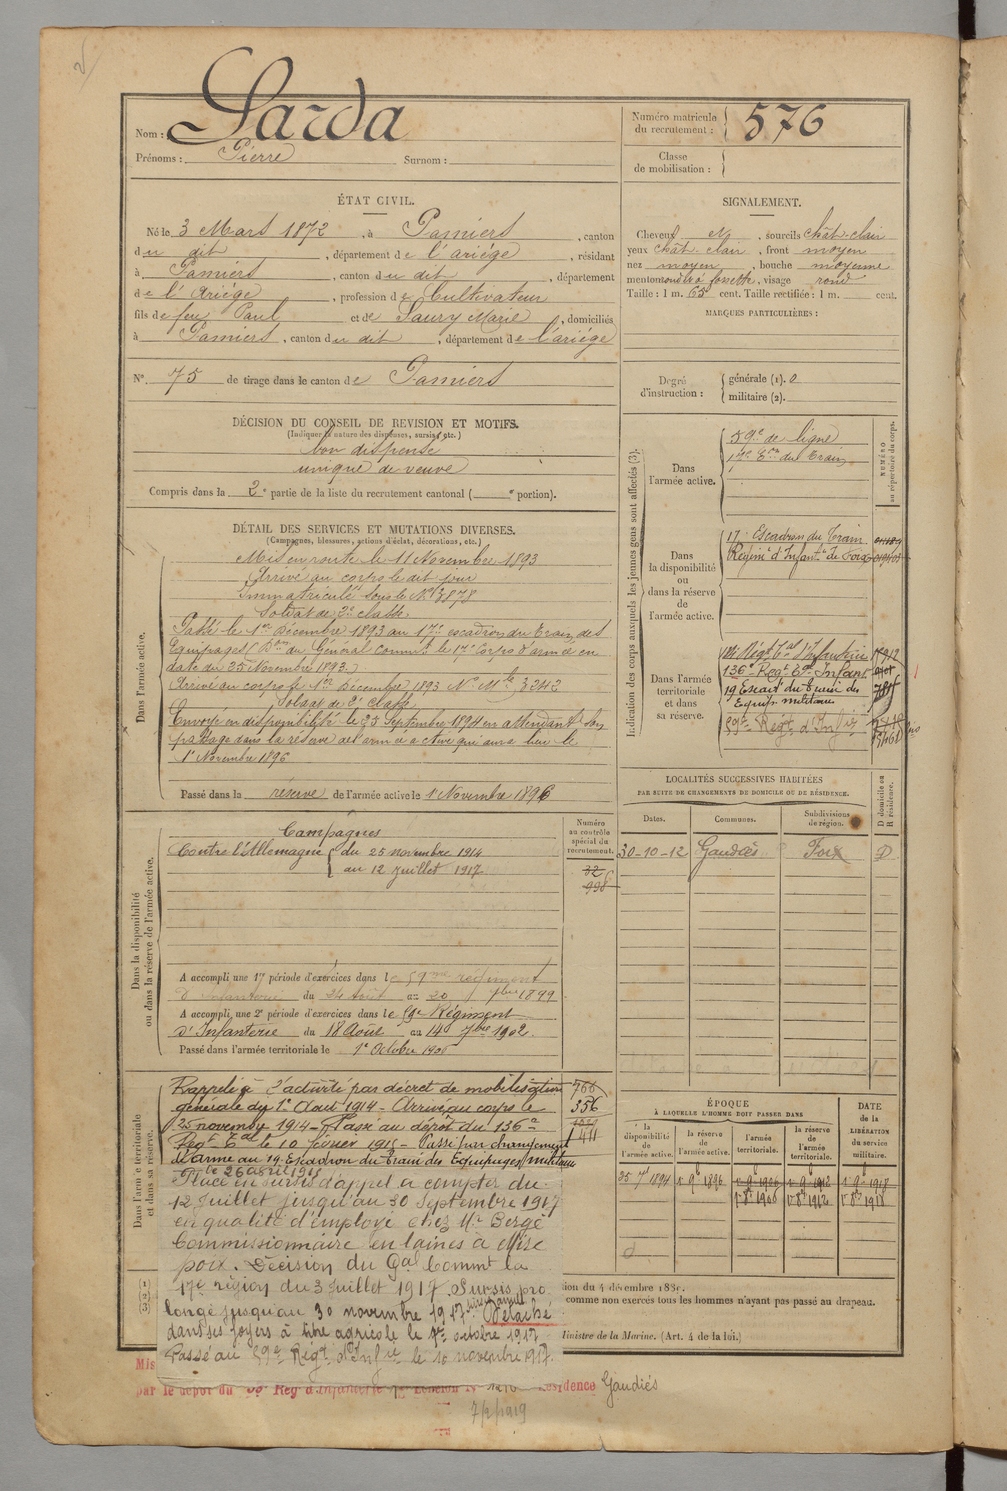 Nom : Sarda
Prénoms : Pierre Surnom :
Numéro matricule du recrutement : 576
Classe de mobilisation :
ÉTAT CIVIL.
Né le 3 Mars 1872, à Pamiers, canton
du dit, département de l'ariége, résidant
à Pamiers, canton du dit, département
de l'Ariége, profession de Cultivateur
fils de feu Paul et de Saury Marie, domiciliés
à Pamiers, canton du dit, département de l'ariége
N° 75 de tirage dans le canton de Pamiers
SIGNALEMENT.
Cheveux N, sourcils chât clair
yeux chât clair, front moyen
nez moyen, bouche moyenne
menton rond à fossette, visage rond
Taille : 1 m. 65 cent. Taille rectifiée : 1 m. cent.
MARQUES PARTICULIÈRES :
Degré d'instruction : générale (1). 0
militaire (2).
DÉCISION DU CONSEIL DE REVISION ET MOTIFS.
(Indiquer la nature des dispenses, sursis, etc.)
bon dispensé
unique de veuve
Compris dans la 2e partie de la liste du recrutement cantonal ( e portion).
DÉTAIL DES SERVICES ET MUTATIONS DIVERSES.
(Campagnes, blessures, actions d'éclat, décorations, etc.)
Dans l'armée active.
Mis en route le 11 Novembre 1893
Arrivé au corps le dit jour
Immatriculé sous le N° 3878
Soldat de 2e classe
Passé le 1er Décembre 1893 au 17e escadron du Train des
Equipages (Don du Général commt le 17e Corps d'armée en
date du 25 Novembre 1893.)
Arrivé au corps le 1er Décembre 1893 N° Mle 3242
Soldat de 2e classe
Envoyé en disponibilité le 25 Septembre 1894 en attendant son
passage dans la réserve de l'armée active qui aura lieu le
1er Novembre 1896
Passé dans la réserve de l'armée active le 1 Novembre 1896
Indication des corps auxquels les jeunes gens sont affectés (3).
NUMÉRO au répertoire du corps.
Dans l'armée active.
59e de ligne
17e Eon du Train
Dans la disponibilité ou dans la réserve de l'armée active.
17e Escadron du Train
Régimt d'Infantie de Foix
Dans l'armée territoriale et dans sa réserve.
Régt tal d'Infanterie
136e Régt tal Infant
19 Escad du Train des
Equip. militaires
59e Régt d'Infie
LOCALITÉS SUCCESSIVES HABITÉES
PAR SUITE DE CHANGEMENTS DE DOMICILE OU DE RÉSIDENCE.
Dates. Communes. Subdivisions de région. D domicile ou R résidence.
30-10-12 Gaudiès Foix D
Dans la disponibilité ou dans la réserve de l'armée active.
Numéro au contrôle spécial du recrutement.
32
998
Campagnes
Contre l'Allemagne du 25 novembre 1914
au 12 juillet 1917
A accompli une 1re période d'exercices dans le 59me régiment
d'Infanterie du 24 Août au 20 7bre 1899
A accompli une 2e période d'exercices dans le 59e Régiment
d'Infanterie du 18 Août au 14 7bre 1902.
Passé dans l'armée territoriale le 1er Octobre 1906
Dans l'armée territoriale et dans sa réserve.
766
356
411
Rappelé à l'activité par décret de mobilisation
générale du 1er Aout 1914 - Arrivé au corps le
25 novembre 1914 - Passé au dépôt du 136e
Regt Tal le 10 février 1915 - Passé par changement
d'arme au 19 Escadron du Train des Equipages militaires
le 26 avril 1915
Placé en sursis d'appel à compter du
12 Juillet jusqu'au 30 Septembre 1917
en qualité d'employé chez Mr Bergé
Commissionnaire en laines à Mire
poix. Décision du Gal Commt la
17e région du 3 Juillet 1917. Sursis pro
longé jusqu'au 30 novembre 1917. Détaché
dans ses foyers à titre agricole le 1er octobre 1917
Passé au 59e Régt d'Infie le 10 novembre 1917.
ÉPOQUE
À LAQUELLE L'HOMME DOIT PASSER DANS
la disponibilité de l'armée active. la réserve de l'armée active. l'armée territoriale. la réserve de l'armée territoriale. DATE de la LIBÉRATION du service militaire.
25 7b 1894 1er 9b 1896 1er 9b 1906 1er 9b 1912 1er 9b 1918
1er 8b 1906 1er 8b 1912 1er 8b 1918
tion du 4 décembre 1831.
comme non exercés tous les hommes n'ayant pas passé au drapeau.
Ministre de la Marine. (Art. 4 de la loi.)
Mis
par le dépôt du 59e Rég d'Infanterie Résidence Gaudiés
7/2/1919